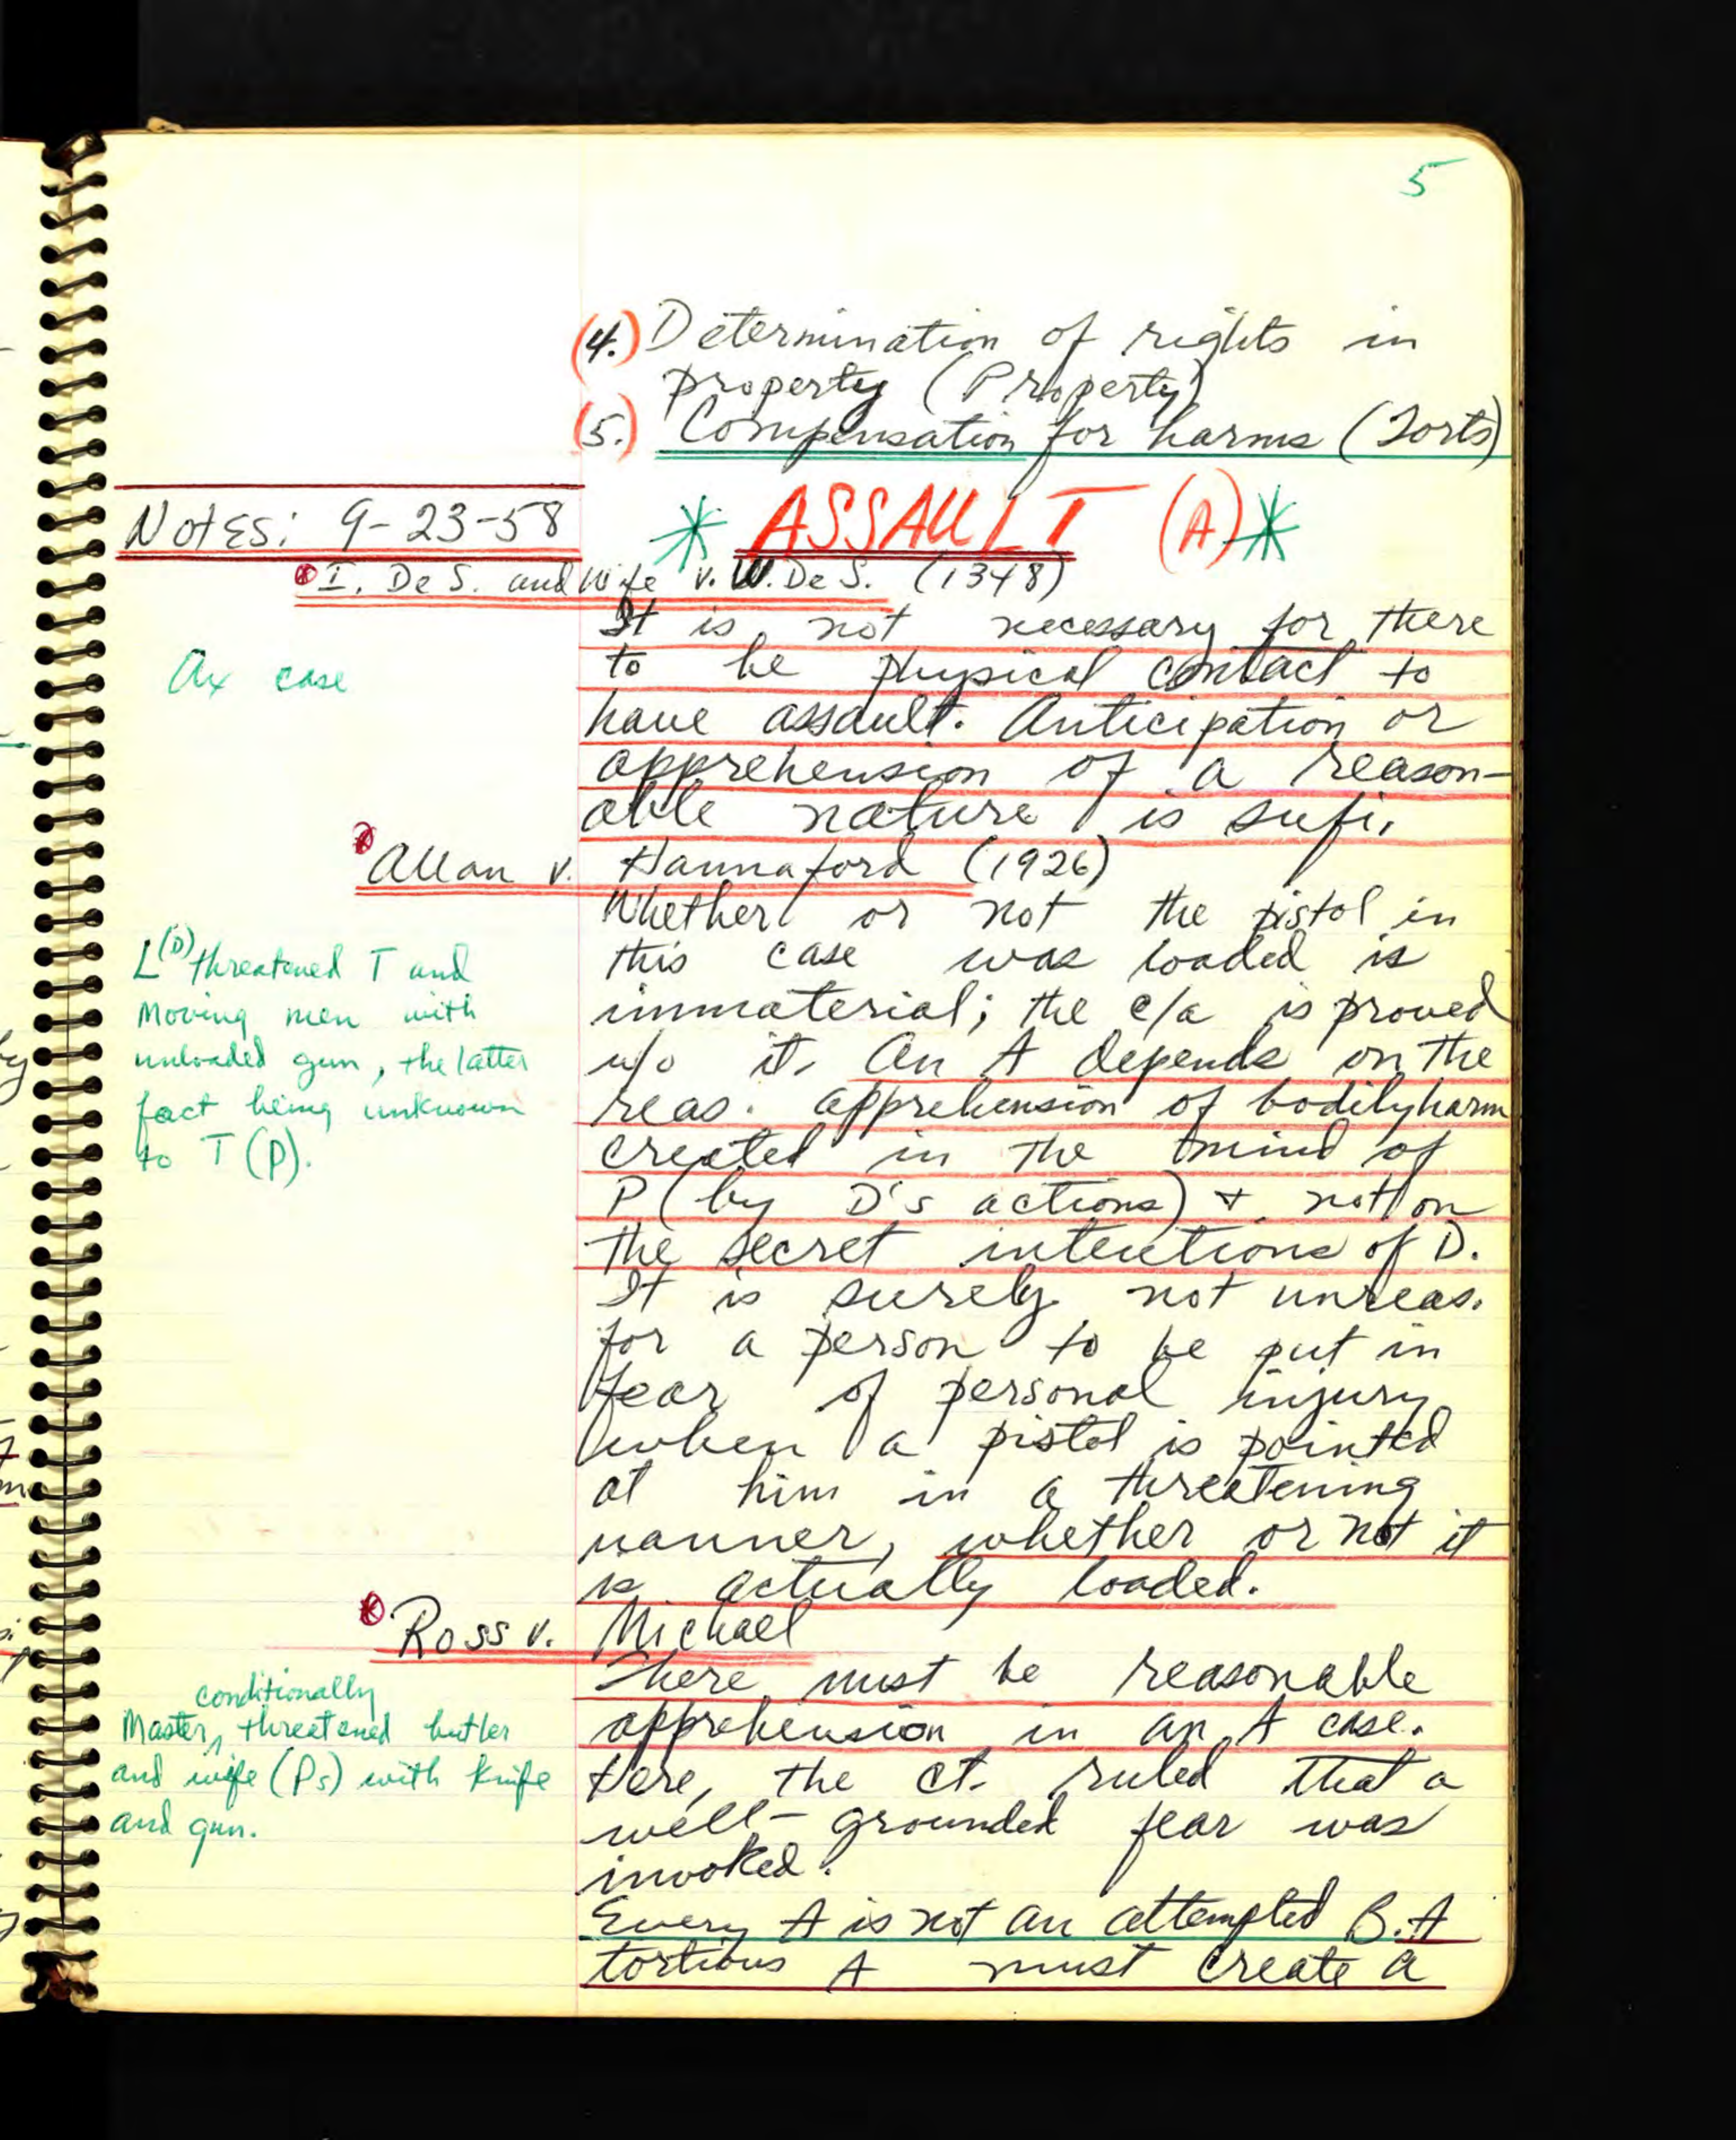 5
(4.) Determination of rights in
property (Property)
(5.) Compensation for harms (Torts)
Notes: 9-23-58
* ASSAULT (A) *
I. De S. and Wife v. W. De S. (1348)
Ax case
It is not necessary for there
to be physical contact to
have assault. Anticipation or
apprehension of a reason-
able nature is sufi.
Allan v. Hannaford (1926)
L(D) threatened T and
moving men with
unloaded gun, the latter
fact being unknown
to T (P).
Whether or not the pistol in
this case was loaded is
immaterial; the c/a is proved
w/o it. An A depends on the
reas. apprehension of bodily harm
created in the mind of
P (by D's actions) + not on
the secret intentions of D.
It is surely not unreas.
for a person to be put in
fear of personal injury
when a pistol is pointed
at him in a threatening
manner, whether or not it
is actually loaded.
Ross v. Michael
conditionally
Master, threatened butler
and wife (Ps) with knife
and gun.
There must be reasonable
apprehension in an A case.
Here, the ct. ruled that a
well-grounded fear was
invoked.
Every A is not an attempted B. A
tortious A must create a